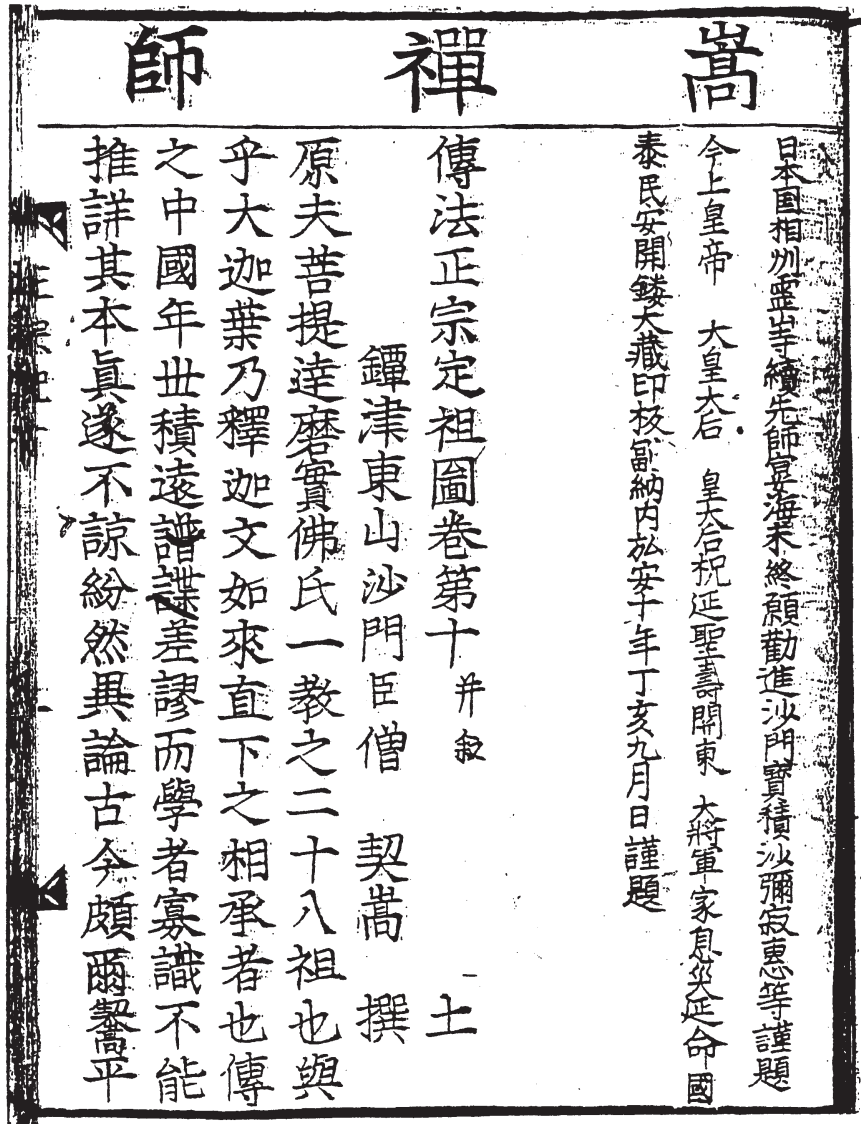 嵩禪師
日本国相州霊山寺續先師宴海未終願勸進沙門寶積沙彌寂惠等謹題
今上皇帝　大皇大后　皇大后祝延聖壽關東　大將軍家息災延命國
泰民安開鏤大藏印板副納内弘安十年丁亥九月日謹題
傳法正宗定祖圖卷第十并叙　士
鐔津東山沙門臣僧　契嵩　撰
原夫菩提達磨實佛氏一教之二十八祖也與
乎大迦葉乃釋迦文如來直下之相承者也傳
之中國年丗積遠譜諜差謬而學者寡識不能
推詳其本眞遂不諒紛然異論古今頗爾契嵩平